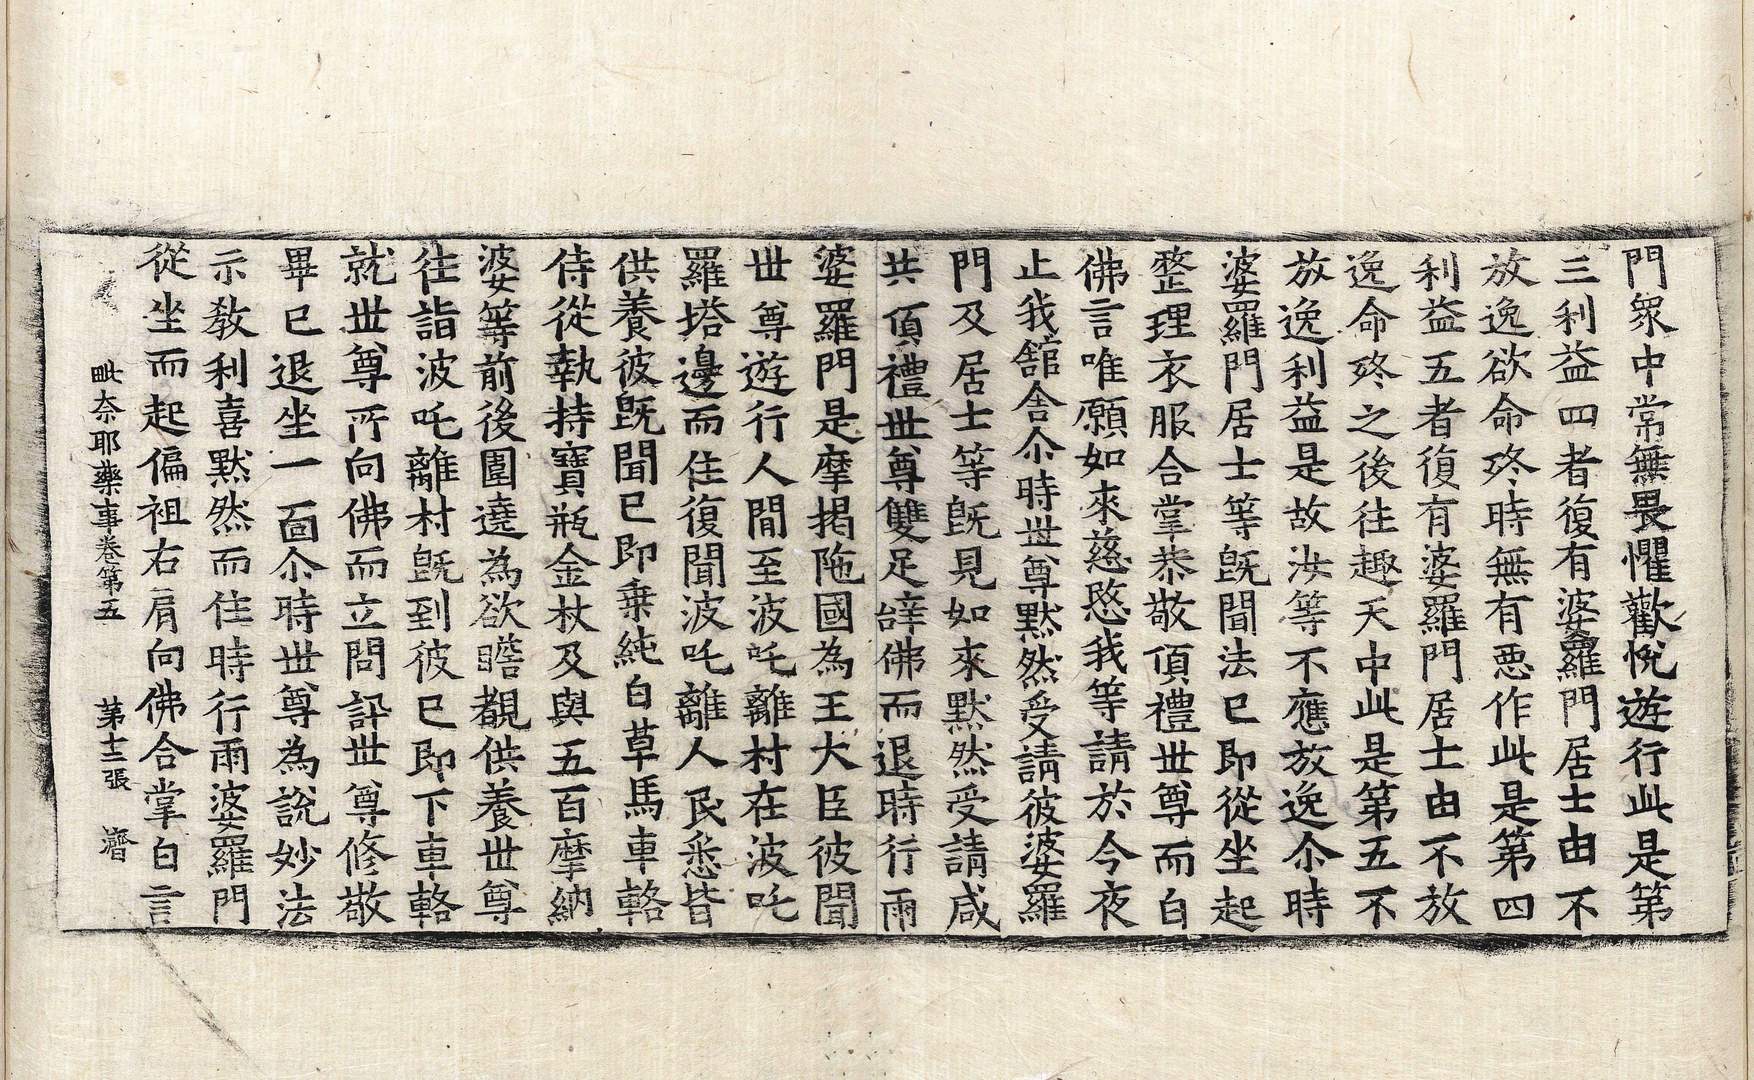 門衆中常無畏懼歡悅遊行此是第
三利益四者復有婆羅門居士由不
放逸欲命終時無有惡作此是第四
利益五者復有婆羅門居士由不放
逸命終之後往趣天中此是第五不
放逸利益是故汝等不應放逸尒時
婆羅門居士等旣聞法已即從坐起
整理衣服合掌恭敬頂禮世尊而白
佛言唯願如來慈愍我等請於今夜
止我舘舎尒時世尊默然受請彼婆羅
門及居士等旣見如來默然受請咸
共頂禮世尊雙足辝佛而退時行雨
婆羅門是摩揭陁國為王大臣彼聞
世尊遊行人間至波吒離村在波吒
羅塔邊而住復聞波吒離人民悉皆
供養彼旣聞已即乗純白草馬車輅
侍從執持寶瓶金杖及與五百摩納
婆等前後圍遶為欲瞻覩供養世尊
往詣波吒離村旣到彼已即下車輅
就世尊所向佛而立問訊世尊修敬
畢已退坐一面尒時世尊為說妙法
示敎利喜默然而住時行雨婆羅門
從坐而起偏袒右肩向佛合掌白言
毗奈耶藥事卷第五　第十三張　濟